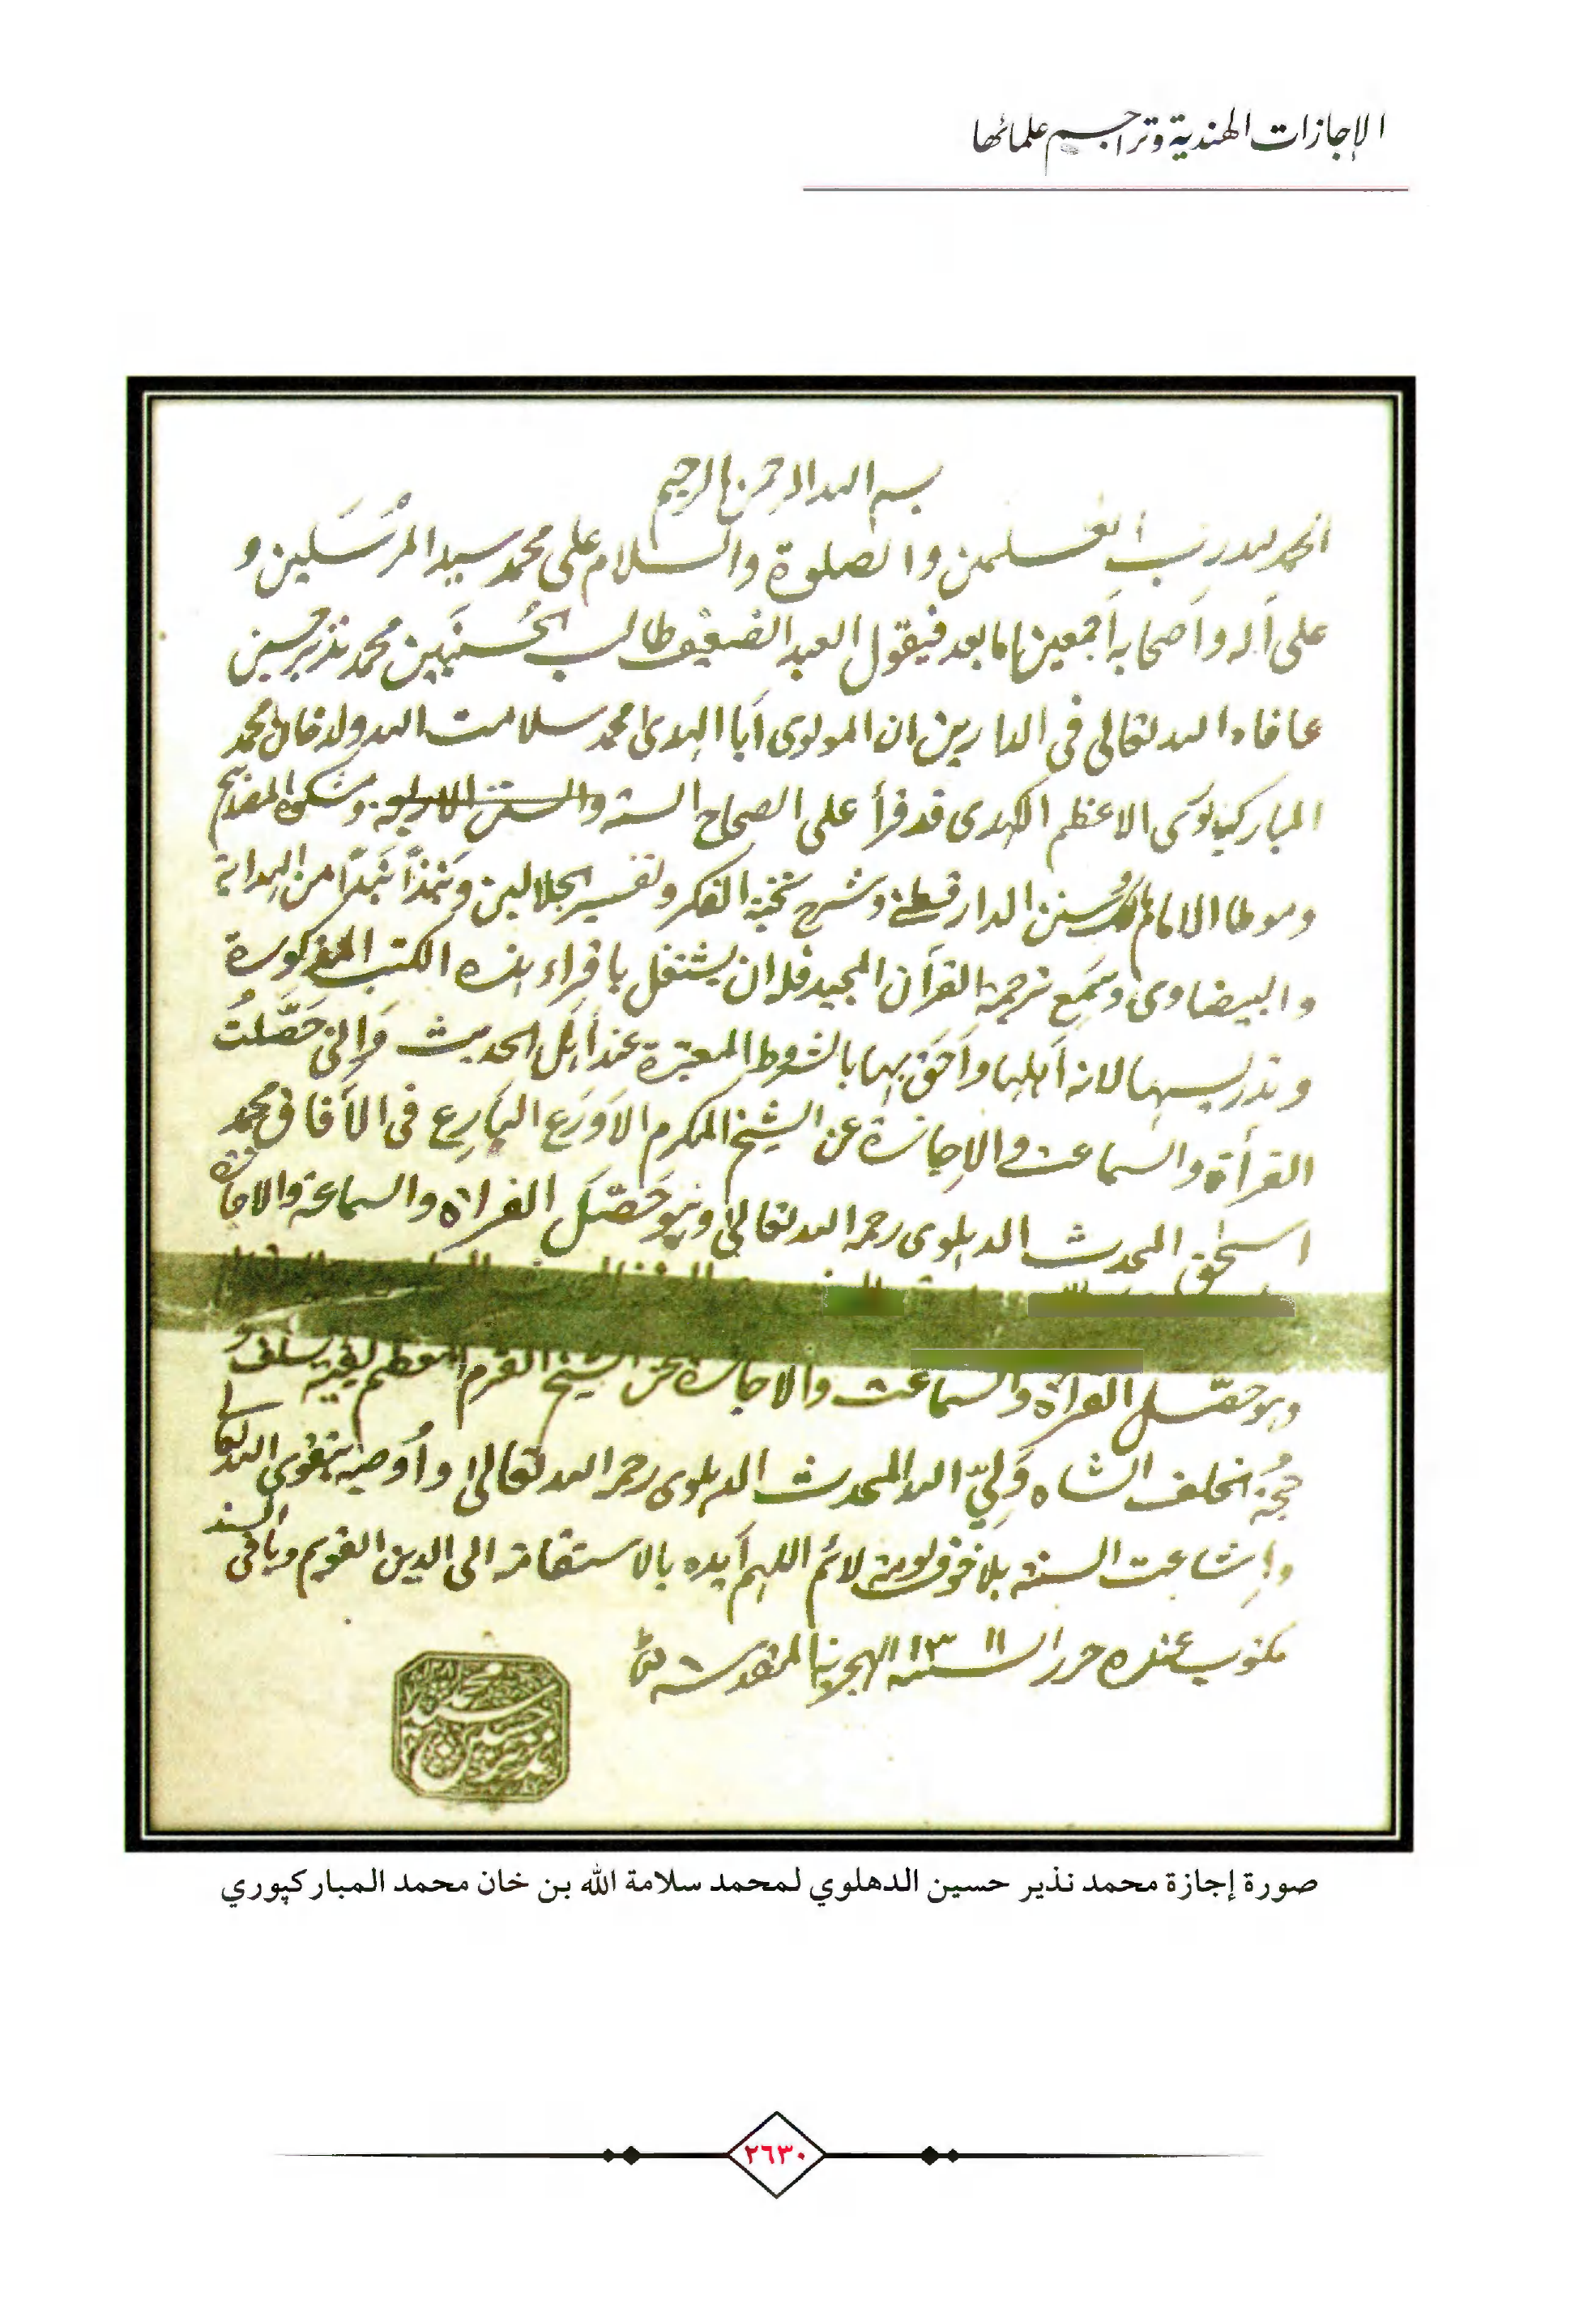 الإجازات الهندية وتراجم علمائها
بسم الله الرحمن الرحيم
الحمد لله رب العلمين والصلوة والسلام على محمد سيد المرسلين و
على آله وأصحابه أجمعين اما بعد فيقول العبد الضعيف طالب الحسنيين محمد نذير حسين
عافاه الله تعالى فى الدارين ان المولوى أبا الهدى محمد سلامت الله ولد خان محمد
المباركپورى الاعظم الكهدى قد قرأ على الصحاح الستة ومشكوة المصابيح
وموطا الامام وسنن الدارقطنے وشرح نخبة الفكر وتفسير الجلالين ونبذاً نبذاً من الهداية
والبيضاوى وسمع ترجمة القرآن المجيد فله ان يشتغل باقراء هذه الكتب المذكورة
وتدريسها لانه أهلها وأحق بها بالشروط المعتبرة عند أهل الحديث وإنى حصلت
القرأة والسماعت والإجازة عن الشيخ المكرم الأورع البارع فى الآفاق محمد
اسحٰق المحدث الدهلوى رحمه الله تعالى وهو حصل القراة والسماعة والاجازة
وهو حصل القرأة والسماعت والاجازة عن الشيخ القرم المعظم بقية السلف و
حجة الخلف الشاه ولي الله المحدث الدهلوى رحمه الله تعالى وأوصيه بتقوى الله تعالى
وإشاعت السنة بلا خوف لومة لائم اللهم أيده بالاستقامة الى الدين القويم وباقى السند
مكتوب عنده حرر السنة ١٣١١ الهجرية المقدسة
سيد محمد نذير حسين
صورة إجازة محمد نذير حسين الدهلوي لمحمد سلامة الله بن خان محمد المباركپوري
٢٦٣٠